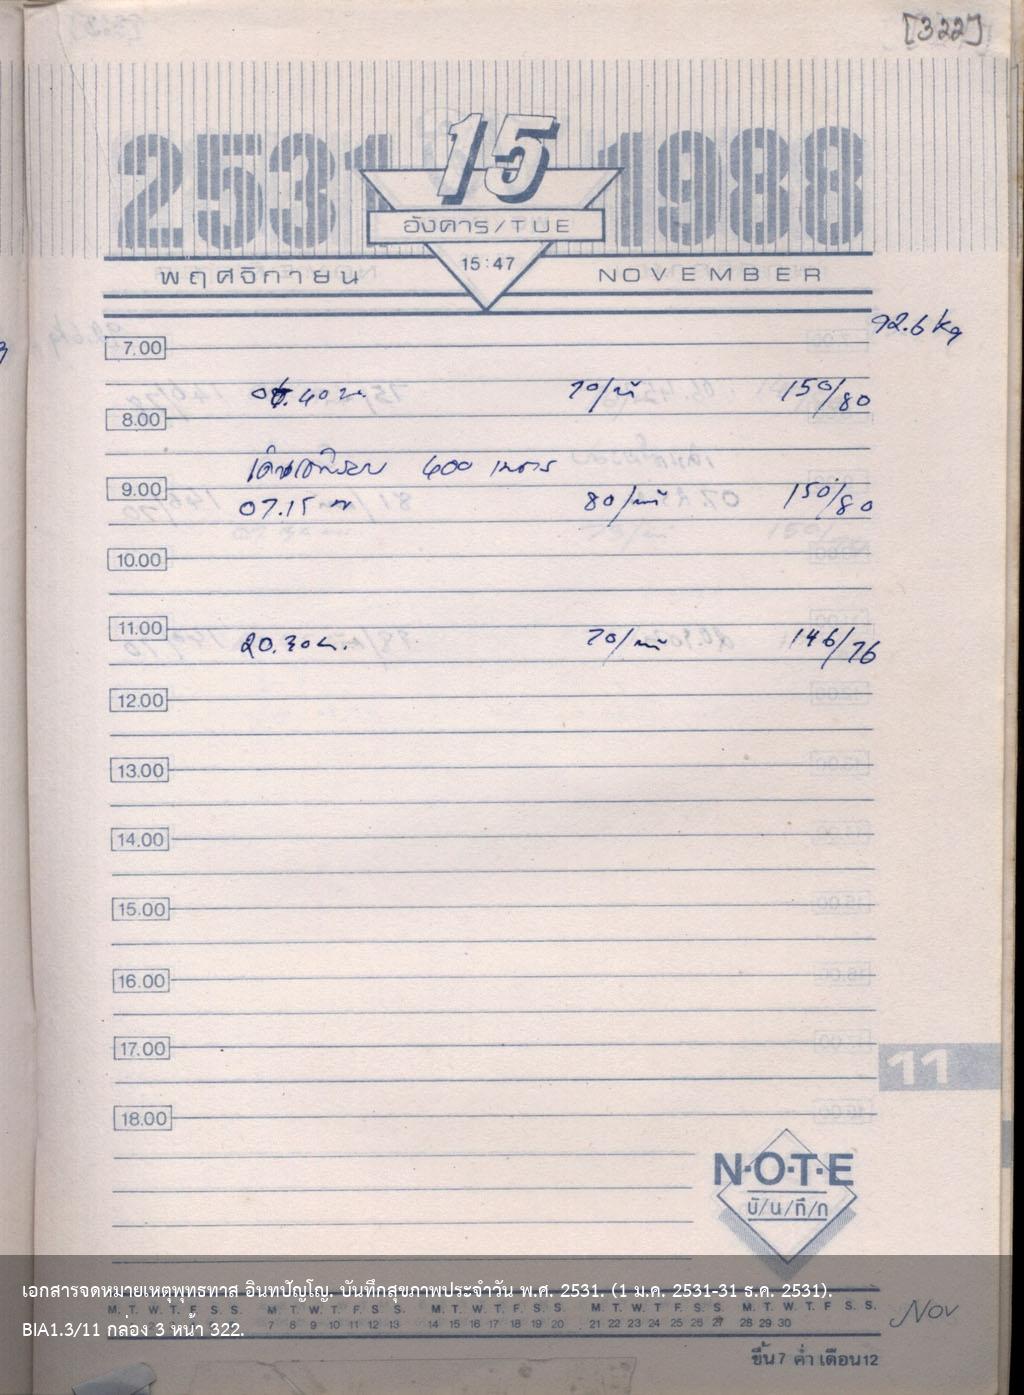 [322]
2531 15 1988
อังคาร/TUE
พฤศจิกายน 15:47 NOVEMBER
92.6 kg
7.00
70/นาที 150/80
8.00
400 เมตร
9.00
07.15 น 80/นาที 150/80
10.00
11.00
20.30 น. 70/นาที 146/76
12.00
13.00
14.00
15.00
16.00
17.00
11
18.00
N·O·T·E
บั/น/ทึ/ก
เอกสารจดหมายเหตุพุทธทาส อินทปัญโญ. บันทึกสุขภาพประจำวัน พ.ศ. 2531. (1 ม.ค. 2531-31 ธ.ค. 2531).
M. T. W. T. F. S. S. M. T. W. T. F. S. S. M. T. W. T. F. S. S. M. T. W. T. F. S. S. M. T. W. T. F. S. S. Nov
7 8 9 10 11 12 13 14 15 16 17 18 19 20 21 22 23 24 25 26 27 28 29 30
BIA1.3/11 กล่อง 3 หน้า 322.
ขึ้น 7 ค่ำ เดือน 12